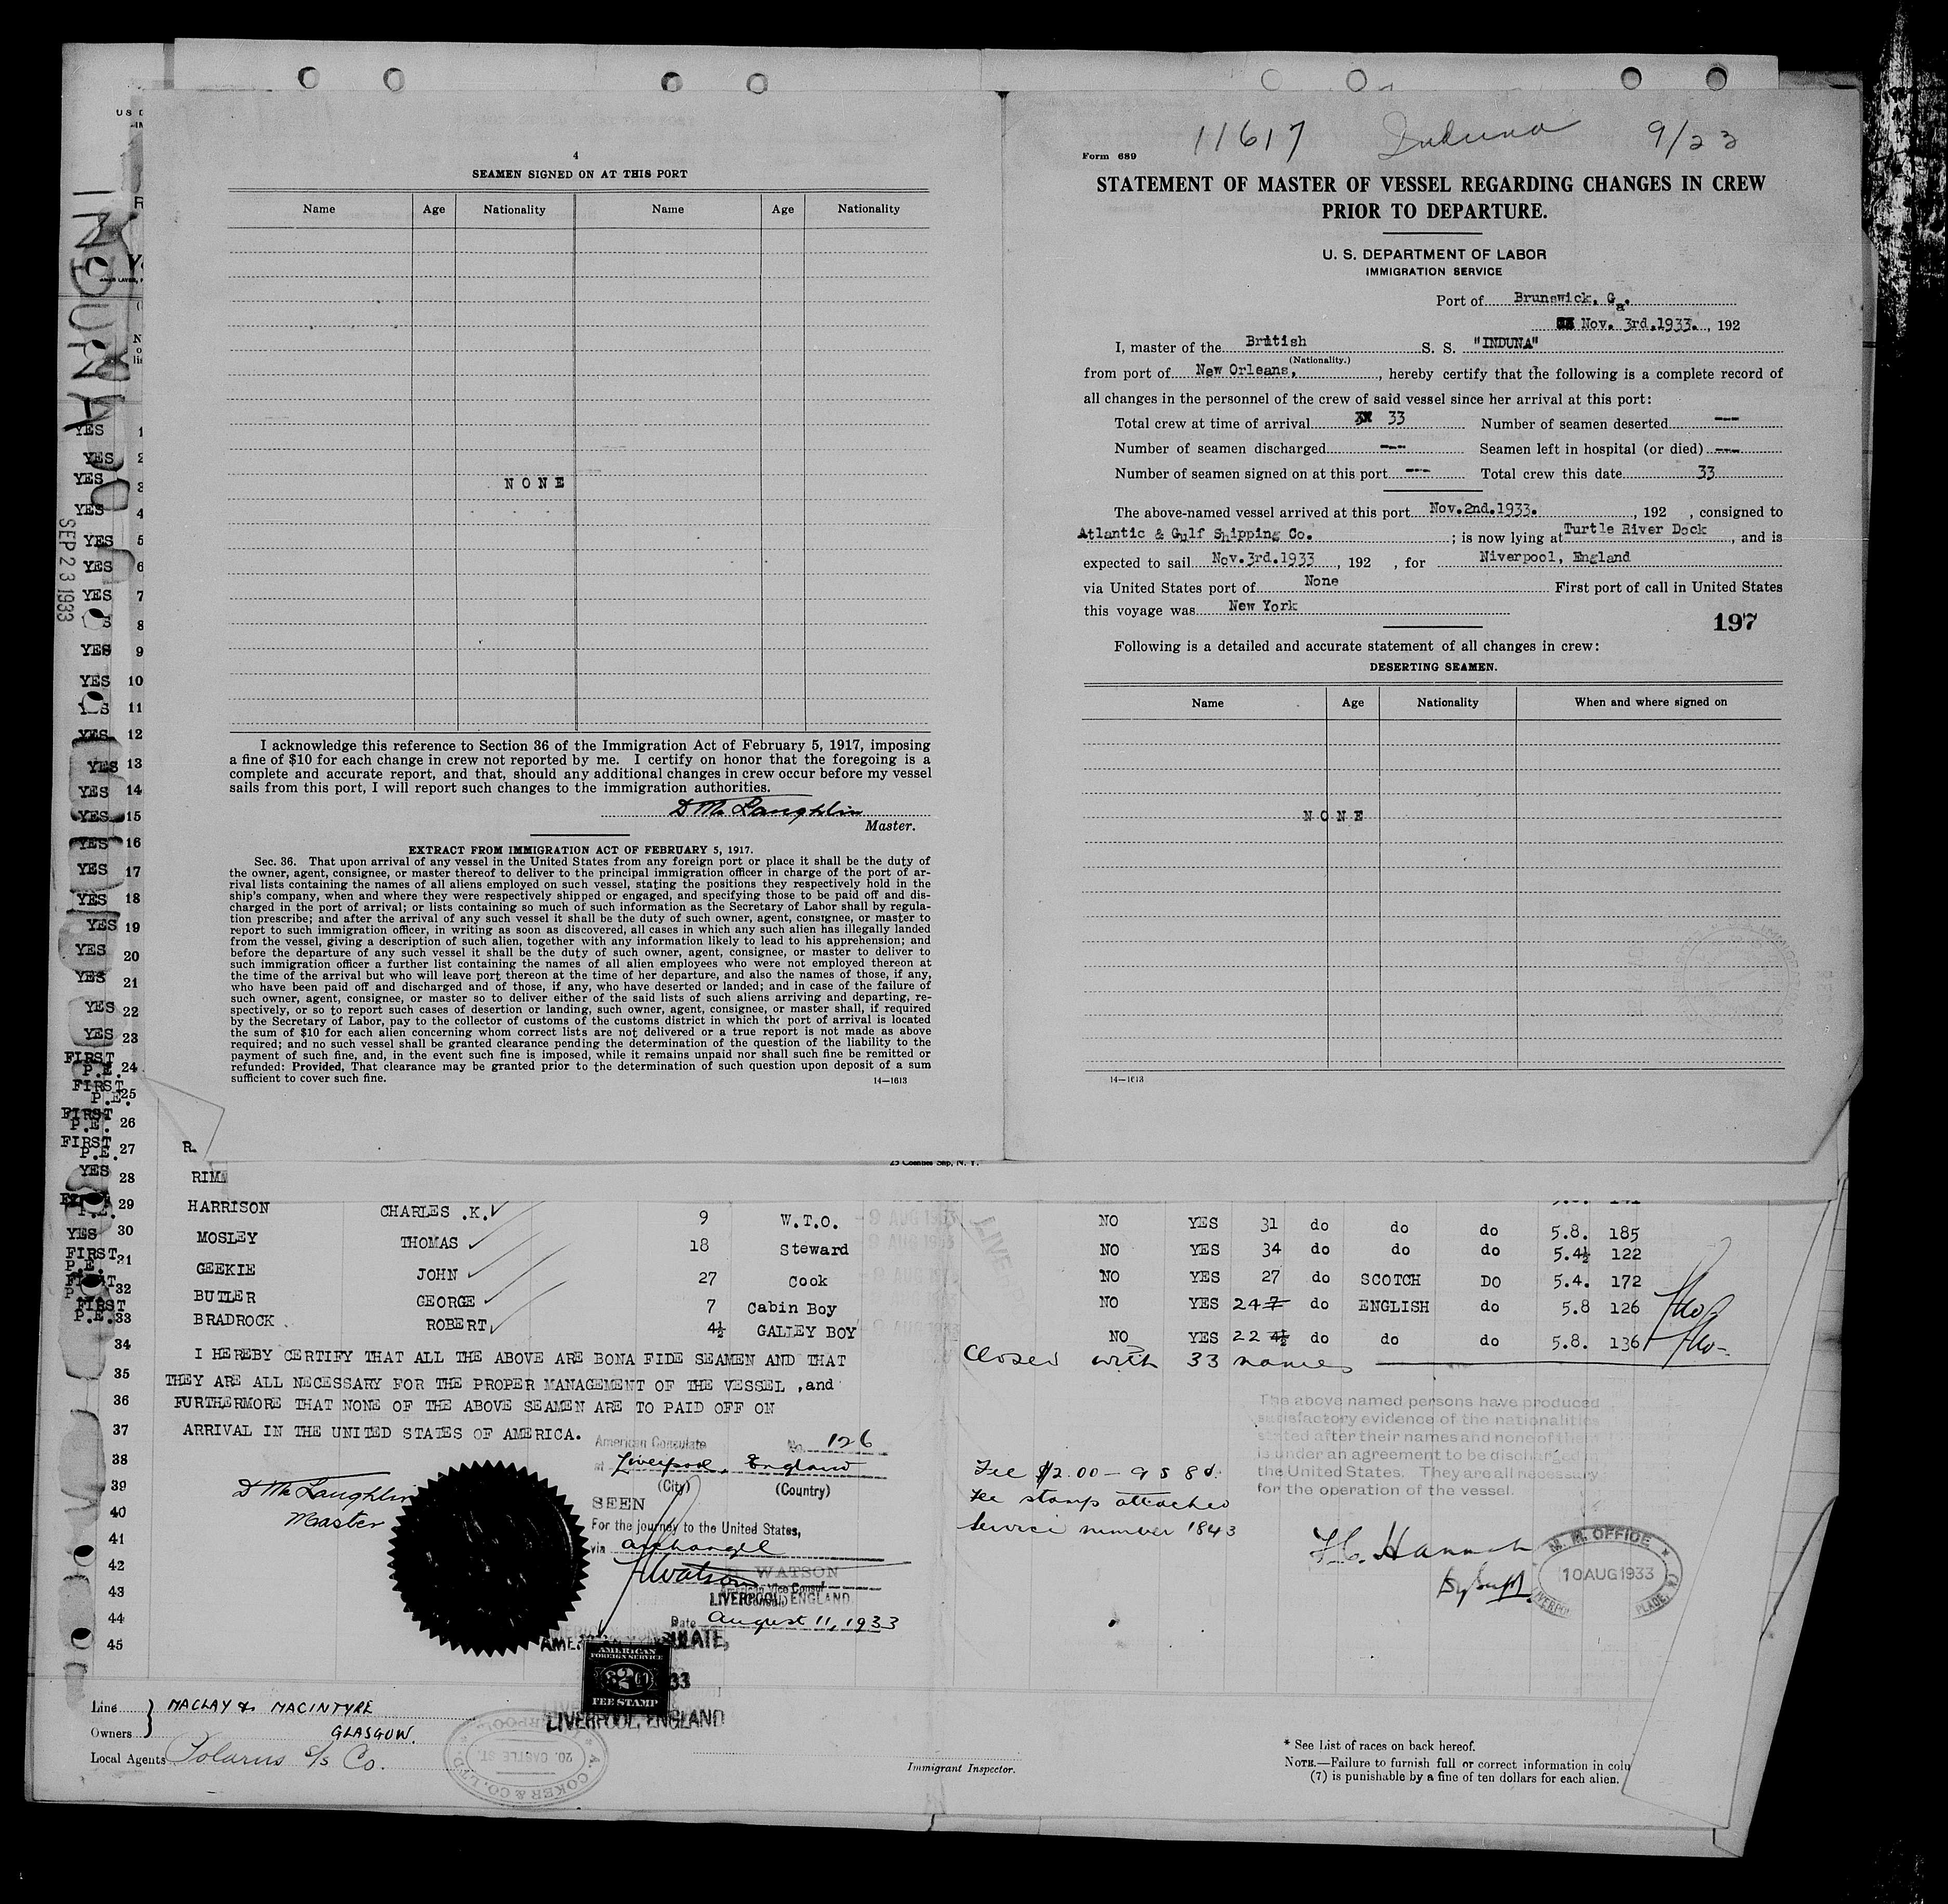 4
SEAMEN SIGNED ON AT THIS PORT
Name Age Nationality Name Age Nationality
NONE
I acknowledge this reference to Section 36 of the Immigration Act of February 5, 1917, imposing
a fine of $10 for each change in crew not reported by me. I certify on honor that the foregoing is a
complete and accurate report, and that, should any additional changes in crew occur before my vessel
sails from this port, I will report such changes to the immigration authorities.
D McLaughlin
Master.
EXTRACT FROM IMMIGRATION ACT OF FEBRUARY 5, 1917.
Sec. 36. That upon arrival of any vessel in the United States from any foreign port or place it shall be the duty of
the owner, agent, consignee, or master thereof to deliver to the principal immigration officer in charge of the port of ar-
rival lists containing the names of all aliens employed on such vessel, stating the positions they respectively hold in the
ship's company, when and where they were respectively shipped or engaged, and specifying those to be paid off and dis-
charged in the port of arrival; or lists containing so much of such information as the Secretary of Labor shall by regula-
tion prescribe; and after the arrival of any such vessel it shall be the duty of such owner, agent, consignee, or master to
report to such immigration officer, in writing as soon as discovered, all cases in which any such alien has illegally landed
from the vessel, giving a description of such alien, together with any information likely to lead to his apprehension; and
before the departure of any such vessel it shall be the duty of such owner, agent, consignee, or master to deliver to
such immigration officer a further list containing the names of all alien employees who were not employed thereon at
the time of the arrival but who will leave port thereon at the time of her departure, and also the names of those, if any,
who have been paid off and discharged and of those, if any, who have deserted or landed; and in case of the failure of
such owner, agent, consignee, or master so to deliver either of the said lists of such aliens arriving and departing, re-
spectively, or so to report such cases of desertion or landing, such owner, agent, consignee, or master shall, if required
by the Secretary of Labor, pay to the collector of customs of the customs district in which the port of arrival is located
the sum of $10 for each alien concerning whom correct lists are not delivered or a true report is not made as above
required; and no such vessel shall be granted clearance pending the determination of the question of the liability to the
payment of such fine, and, in the event such fine is imposed, while it remains unpaid nor shall such fine be remitted or
refunded: Provided, That clearance may be granted prior to the determination of such question upon deposit of a sum
sufficient to cover such fine.
14—1613
11617 Induna 9/23
Form 689
STATEMENT OF MASTER OF VESSEL REGARDING CHANGES IN CREW
PRIOR TO DEPARTURE.
U. S. DEPARTMENT OF LABOR
IMMIGRATION SERVICE
Port of Brunswick, Ga.
Nov. 3rd.1933. , 192
I, master of the British S. S. "INDUNA"
(Nationality.)
from port of New Orleans, , hereby certify that the following is a complete record of
all changes in the personnel of the crew of said vessel since her arrival at this port:
Total crew at time of arrival 33 Number of seamen deserted ---
Number of seamen discharged --- Seamen left in hospital (or died) ---
Number of seamen signed on at this port --- Total crew this date 33
The above-named vessel arrived at this port Nov.2nd.1933. , 192 , consigned to
Atlantic & Gulf Shipping Co. ; is now lying at Turtle River Dock , and is
expected to sail Nov.3rd.1933 , 192 , for Niverpool, England
via United States port of None First port of call in United States
this voyage was New York
197
Following is a detailed and accurate statement of all changes in crew:
DESERTING SEAMEN.
Name Age Nationality When and where signed on
NONE
14—1613
INDUNA
SEP 23 1933
YES 1
YES 2
YES 3
YES 4
YES 5
YES 6
YES 7
8
YES 9
YES 10
11
YES 12
YES 13
YES 14
YES 15
YES 16
YES 17
YES 18
YES 19
YES 20
YES 21
YES 22
YES 23
FIRST P.E. 24
FIRST P.E. 25
FIRST P.E. 26
FIRST P.E. 27
YES 28 RIM
29 HARRISON CHARLES .K. 9 W.T.O. -9 AUG 1933 NO YES 31 do do do 5.8. 185
YES 30 MOSLEY THOMAS 18 Steward NO YES 34 do do do 5.4½ 122
FIRST P.E. 31 GEEKIE JOHN 27 Cook NO YES 27 do SCOTCH DO 5.4. 172
32 BUTLER GEORGE 7 Cabin Boy NO YES 24 7 do ENGLISH do 5.8 126
FIRST P.E. 33 BRADROCK ROBERT 4½ GALLEY BOY NO YES 22 4½ do do do 5.8. 136
34 I HEREBY CERTIFY THAT ALL THE ABOVE ARE BONA FIDE SEAMEN AND THAT Closed with 33 names
35 THEY ARE ALL NECESSARY FOR THE PROPER MANAGEMENT OF THE VESSEL ,and
36 FURTHERMORE THAT NONE OF THE ABOVE SEAMEN ARE TO PAID OFF ON
37 ARRIVAL IN THE UNITED STATES OF AMERICA.
38
39
40
41
42
43
44
45
D McLaughlin
Master
American Consulate No. 126
at Liverpool, England
(City) (Country)
SEEN
For the journey to the United States,
via Archangel
H Watson
WATSON
American Vice Consul
LIVERPOOL, ENGLAND
Date August 11, 1933
AMERICAN
FOREIGN SERVICE
FEE STAMP
LIVERPOOL, ENGLAND
The above named persons have produced
satisfactory evidence of the nationalities
stated after their names and none of them
is under an agreement to be discharged in
the United States. They are all necessary
for the operation of the vessel.
Fee $2.00 — 9 s 8 d.
Fee stamp attached
Service number 1843
M. M. OFFICE
10 AUG 1933
Line MACLAY & MACINTYRE
Owners GLASGOW.
Local Agents Polarus S/S Co.
A. COKER & CO. LTD.
20. CASTLE ST.
LIVERPOOL
Immigrant Inspector.
* See List of races on back hereof.
NOTE.—Failure to furnish full or correct information in colu
(7) is punishable by a fine of ten dollars for each alien.